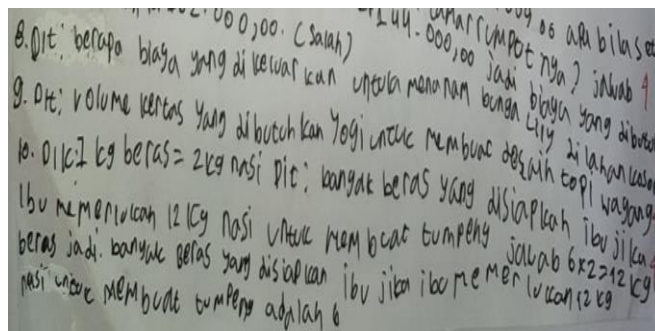 000,00. (Salah)
144.000,00 jadi biaya yang dibutuh
8. Dit: berapa biaya yang di keluarkan untuk menanam bunga lily di lahan koson
rumputnya? jawab 4
9. Dit: volume kertas yang dibutuhkan Yogi untuk membuat desain topi wayang
10. Dik: 1 kg beras = 2 kg nasi Dit: banyak beras yang disiapkan ibu jika
Ibu memerlukan 12 kg nasi untuk membuat tumpeng jawab 6x2=12 kg
beras jadi. banyak beras yang disiapkan ibu jika ibu memerlukan 12 kg
nasi untuk membuat tumpeng adalah 6